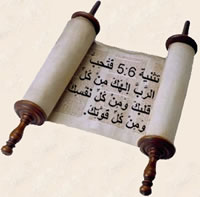 تثنية 5:6 فتحب
الرب إلهك من كل
قلبك ومن كل نفسك
ومن كل قوتك.